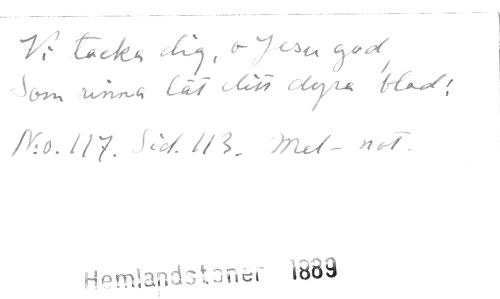 Vi tacka dig, o Jesu god,
Som rinna lät ditt dyra blod!
N:o. 117. Sid. 113. Mel- not.
Hemlandstoner 1889